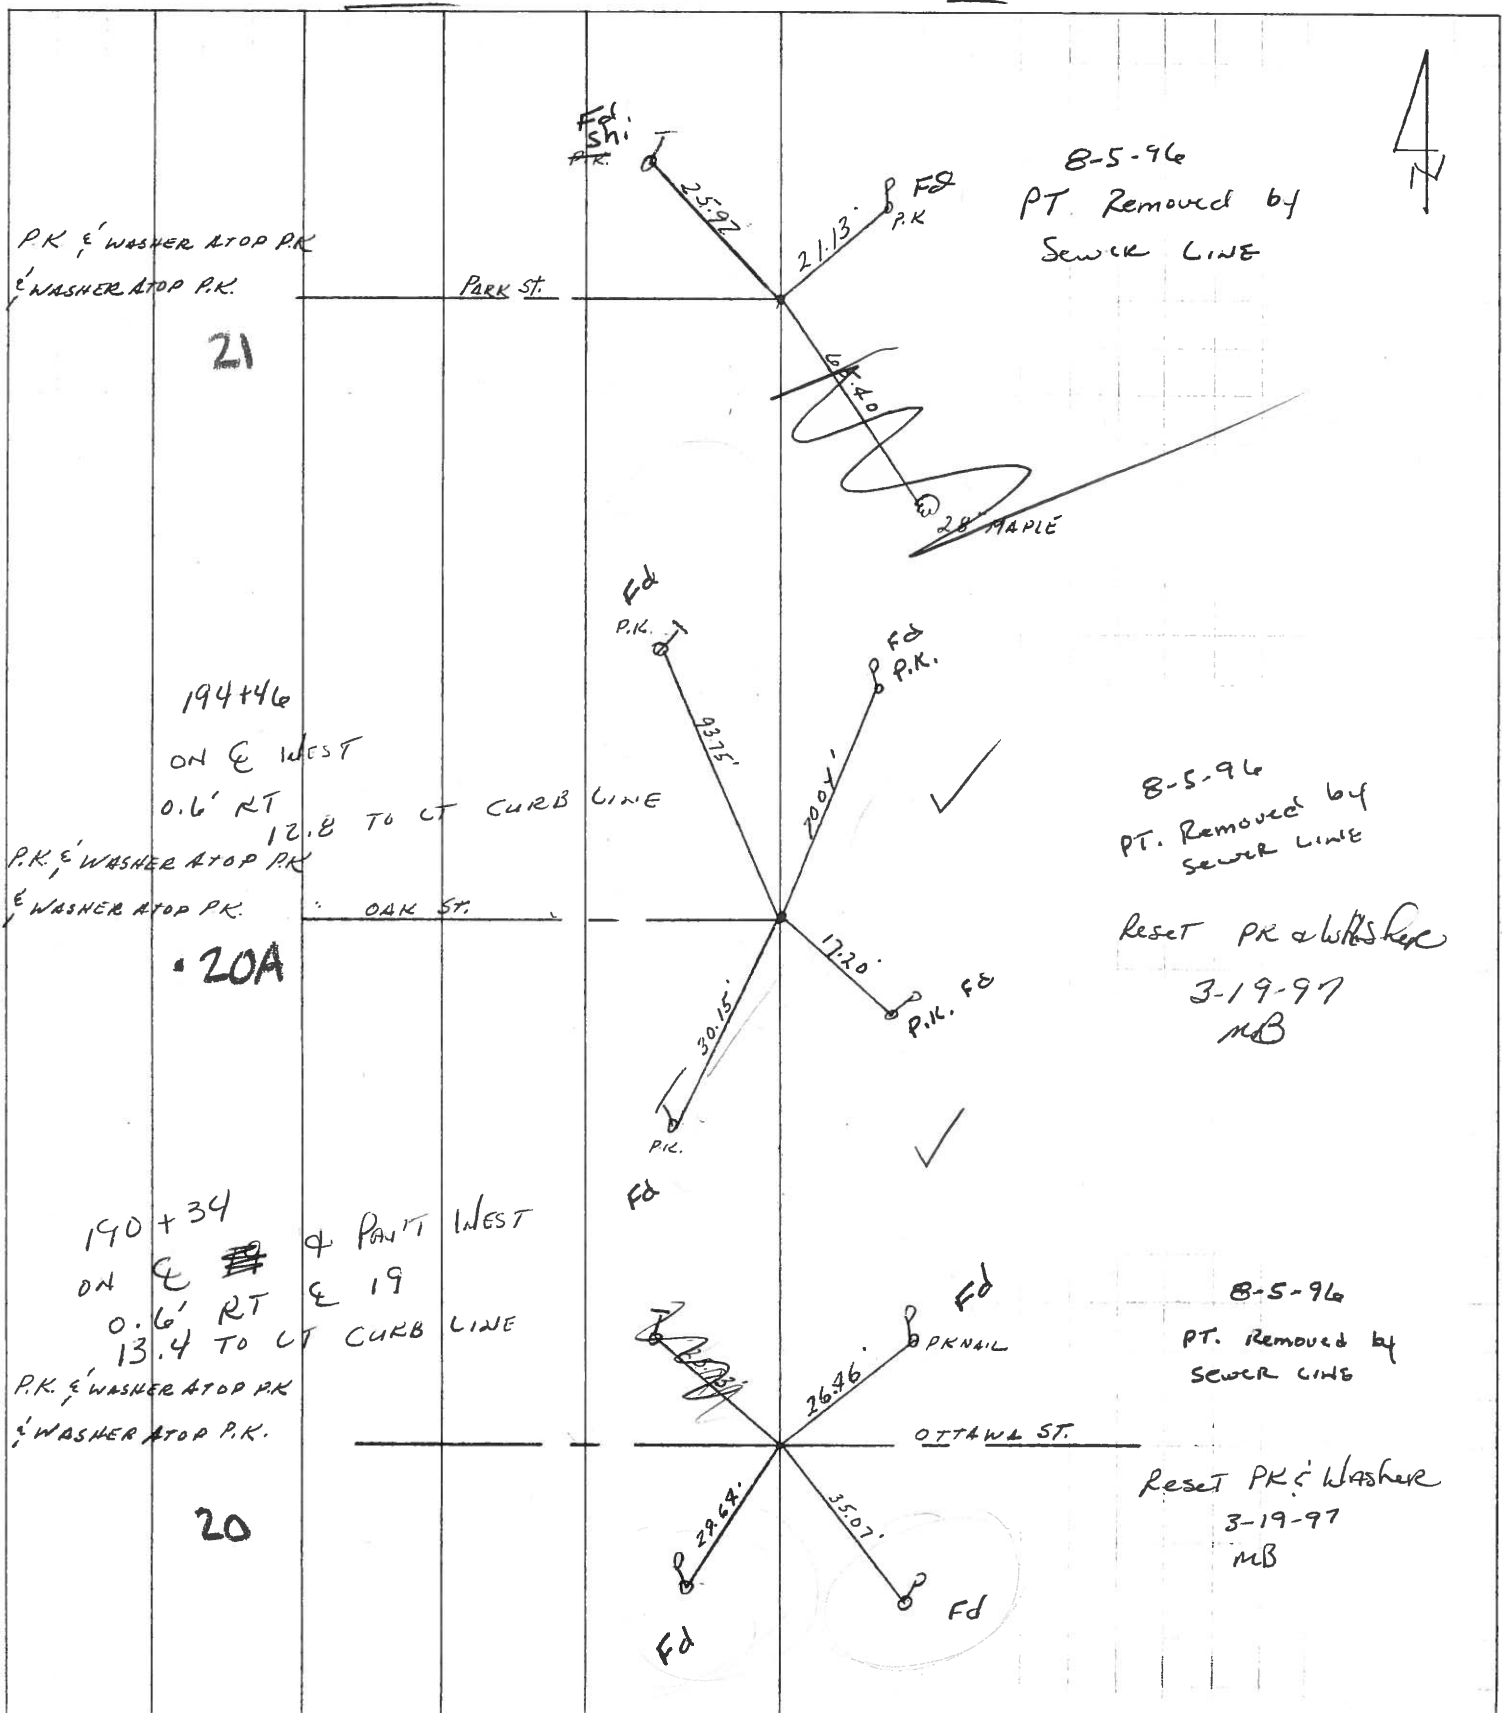 Fd
Shi
P.K.
25.92'
Fd
P.K
21.13'
8-5-96
PT. Removed by
Sewer LINE
N
P.K & WASHER ATOP P.K
& WASHER ATOP P.K.
PARK ST.
21
65.40
28" MAPLE
Fd
P.K.
93.75'
Fd
P.K.
194+46
ON ℄ WEST
0.6' RT
12.8 TO LT CURB LINE
P.K. & WASHER ATOP P.K
& WASHER ATOP P.K.
OAK ST.
20A
8-5-96
PT. Removed by
Sewer LINE
Reset PK & WAsher
3-19-97
MB
17.20'
P.K. Fd
30.15'
P.K.
Fd
190+34
ON ℄ & PAV'T WEST
0.6' RT ℄ 19
13.4 TO LT CURB LINE
P.K. & WASHER ATOP P.K
& WASHER ATOP P.K.
20
Fd
PK NAIL
26.46'
OTTAWA ST.
35.07'
Fd
Fd
8-5-96
PT. Removed by
Sewer LINE
Reset PK & WAsher
3-19-97
MB